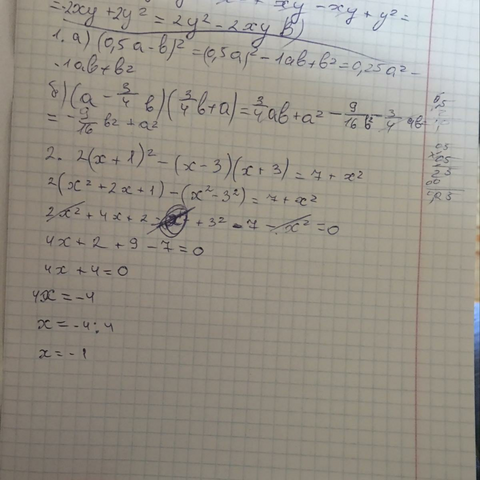 + xy - xy + y² =
= -2xy + 2y² = 2y² - 2xy
1. а) (0,5a - b)² = (0,5a)² - 1ab + b² = 0,25a² -
- 1ab + b²
б) (a - 3/4 b) (3/4 b + a) = 3/4 ab + a² - 9/16 b² - 3/4 ab =
= - 9/16 b² + a²
2. 2(x + 1)² - (x - 3)(x + 3) = 7 + x²
2(x² + 2x + 1) - (x² - 3²) = 7 + x²
2x² + 4x + 2 - x² + 3² - 7 - x² = 0
4x + 2 + 9 - 7 = 0
4x + 4 = 0
4x = -4
x = -4 : 4
x = -1